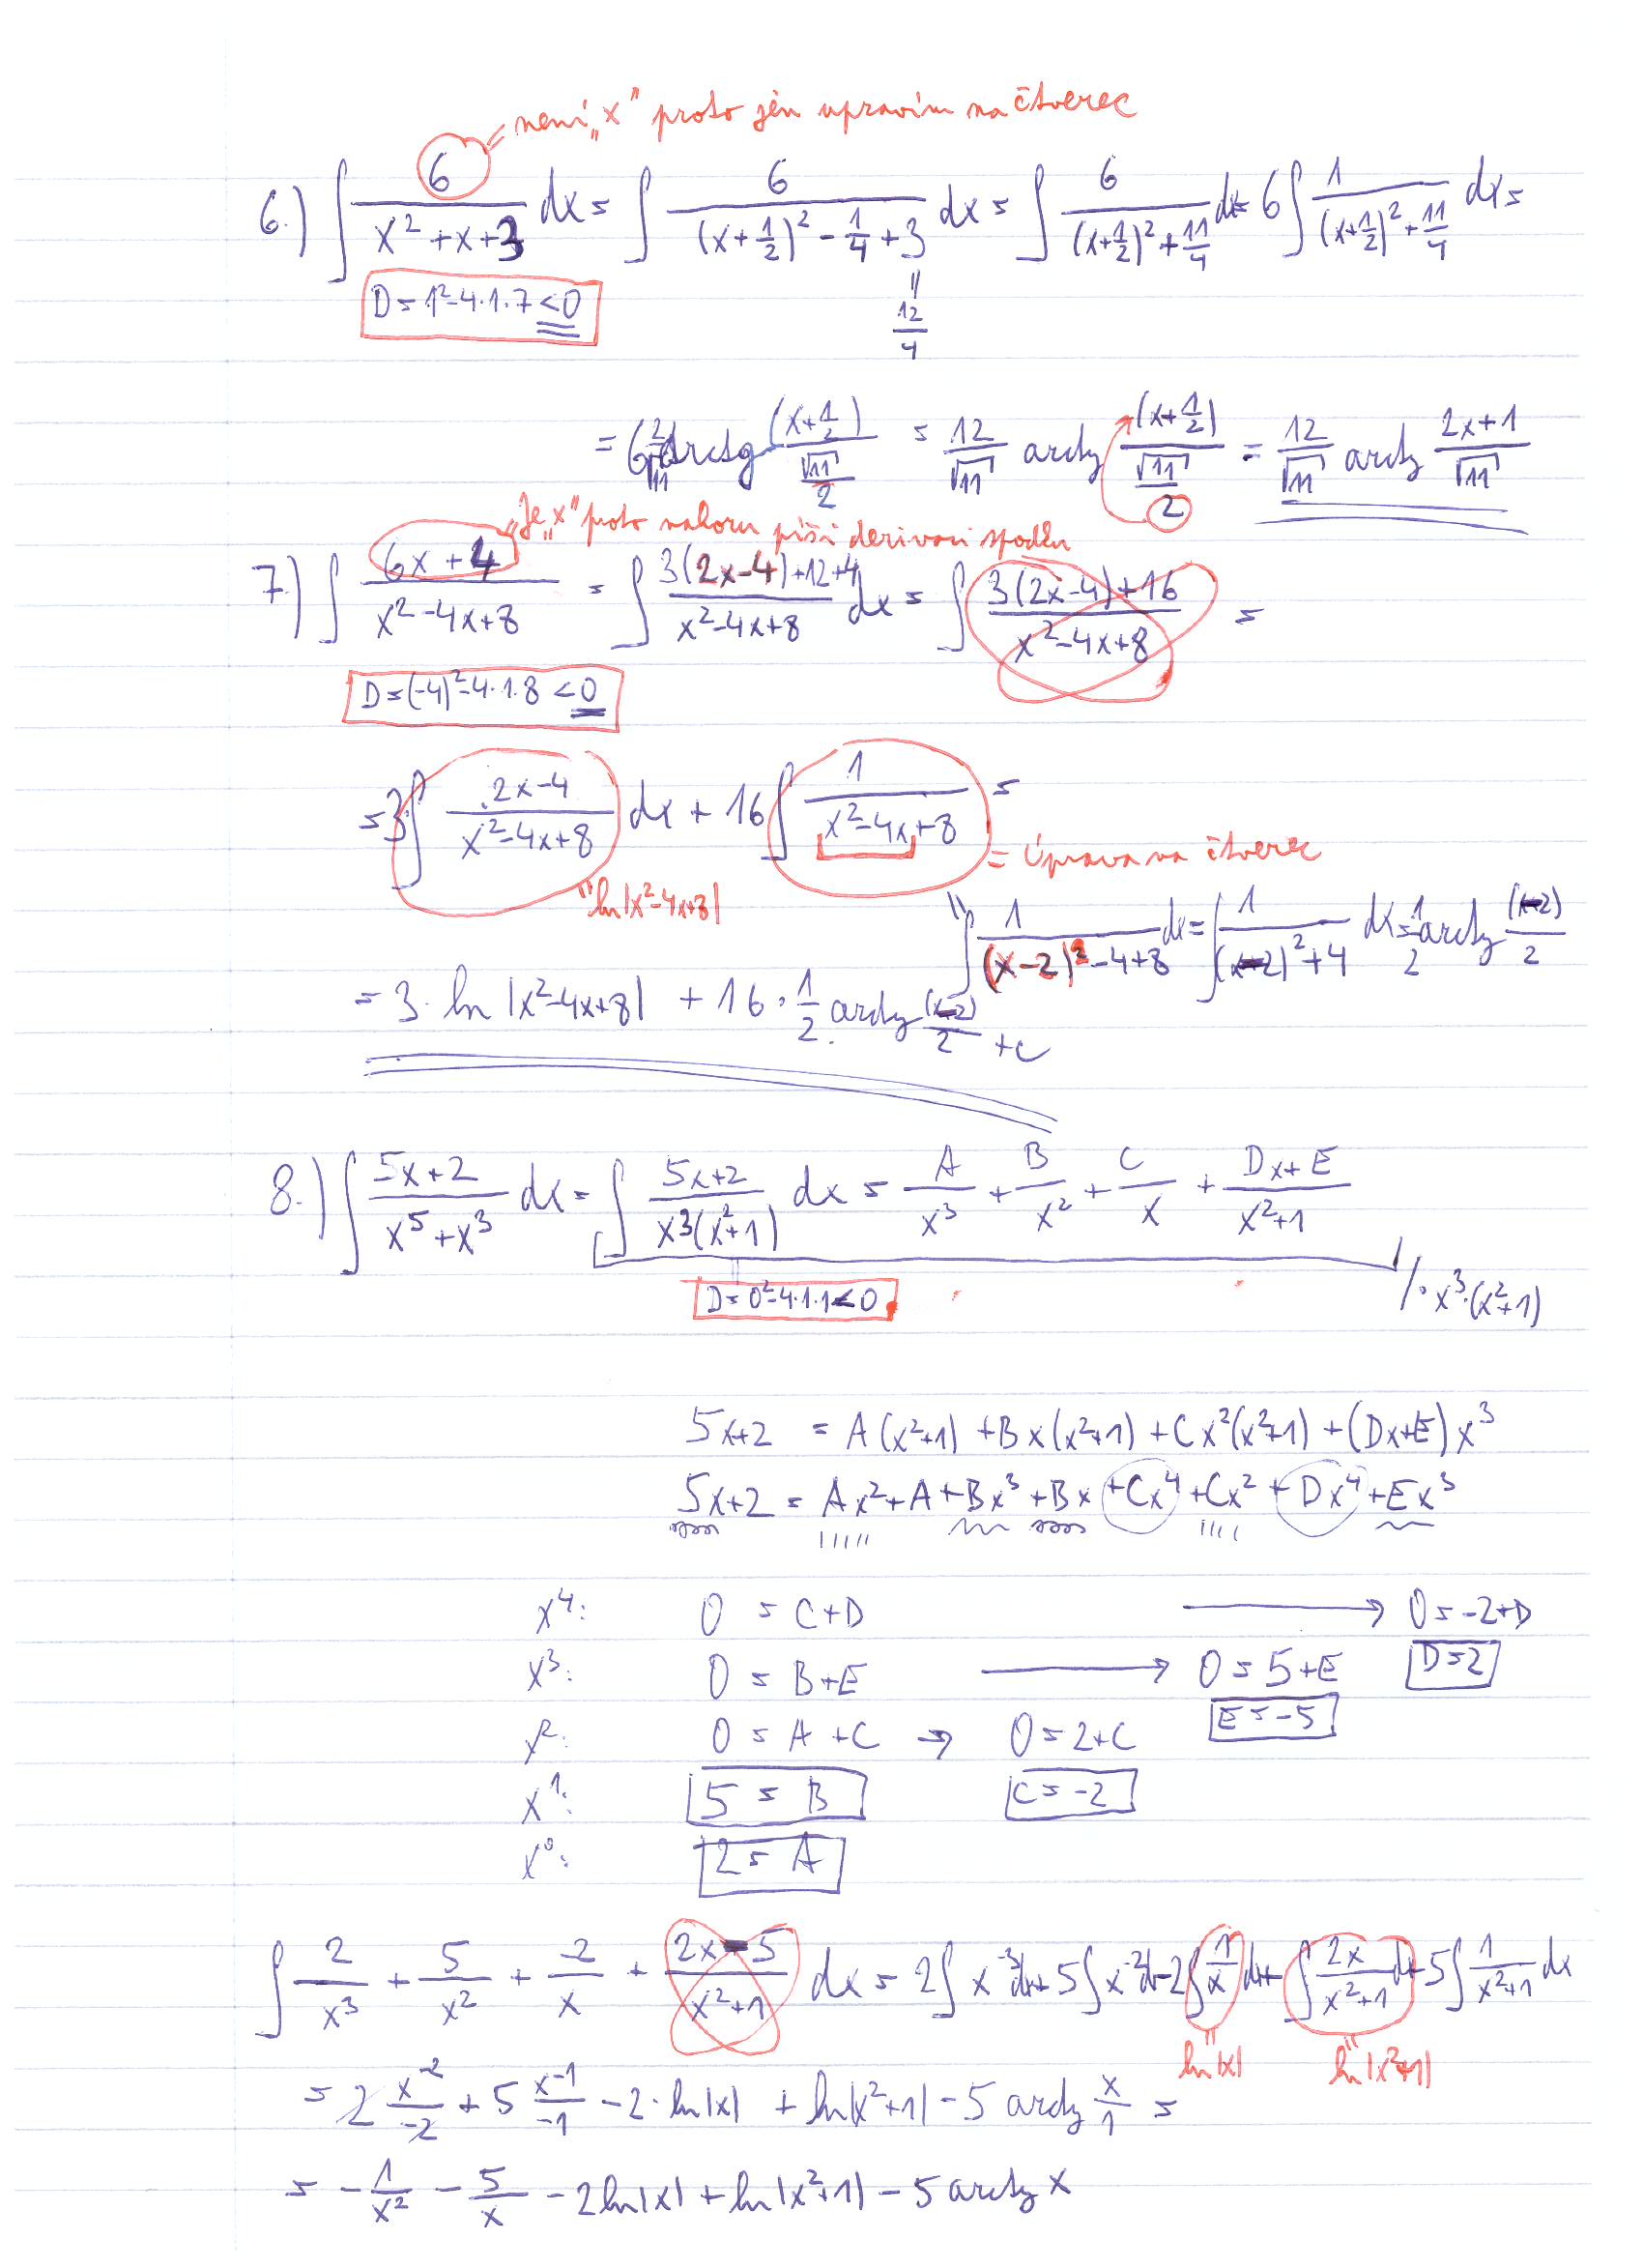 není „x" proto jen upravím na čtverec
6.) ∫ 6/(x²+x+3) dx = ∫ 6/((x+1/2)² - 1/4 + 3) dx = ∫ 6/((x+1/2)² + 11/4) dx = 6∫ 1/((x+1/2)² + 11/4) dx =
D = 1² - 4·1·7 < 0
" 12/4
= 6 2/√11 arctg (x+1/2)/(√11/2) = 12/√11 arctg (x+1/2)/(√11/2) = 12/√11 arctg (2x+1)/√11
„Je „x" proto nahoru píši derivaci spodku
7.) ∫ (6x+4)/(x²-4x+8) = ∫ (3(2x-4)+12+4)/(x²-4x+8) dx = ∫ (3(2x-4)+16)/(x²-4x+8) =
D = (-4)² - 4·1·8 < 0
= 3·∫ (2x-4)/(x²-4x+8) dx + 16 ∫ 1/(x²-4x+8) =
= Úprava na čtverec
" ln|x²-4x+8|
" ∫ 1/((x-2)²-4+8) dx = ∫ 1/((x-2)²+4) dx = 1/2 arctg (x-2)/2
= 3·ln|x²-4x+8| + 16·1/2 arctg (x-2)/2 + C
8.) ∫ (5x+2)/(x⁵+x³) dx = ∫ (5x+2)/(x³(x²+1)) dx = A/x³ + B/x² + C/x + (Dx+E)/(x²+1)
D = 0² - 4·1·1 < 0
/· x³·(x²+1)
5x+2 = A(x²+1) + Bx(x²+1) + Cx²(x²+1) + (Dx+E)x³
5x+2 = Ax² + A + Bx³ + Bx + Cx⁴ + Cx² + Dx⁴ + Ex³
x⁴: 0 = C+D → 0 = -2+D
D = 2
x³: 0 = B+E → 0 = 5+E
E = -5
x²: 0 = A+C → 0 = 2+C
x¹: 5 = B C = -2
x⁰: 2 = A
∫ 2/x³ + 5/x² + -2/x + (2x-5)/(x²+1) dx = 2∫ x⁻³dx + 5∫ x⁻²dx - 2∫ 1/x dx + ∫ 2x/(x²+1) dx - 5∫ 1/(x²+1) dx
" ln|x| " ln|x²+1|
= 2 x⁻²/-2 + 5 x⁻¹/-1 - 2·ln|x| + ln|x²+1| - 5 arctg x/1 =
= -1/x² - 5/x - 2ln|x| + ln|x²+1| - 5 arctg x